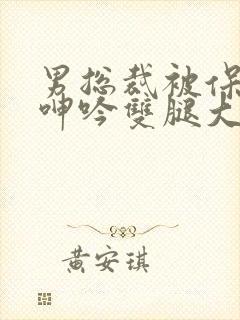 男总裁被保
呻吟雙腿大
黄安琪